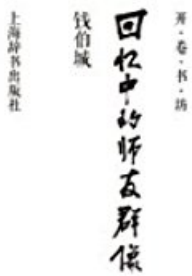 开·卷·书·坊
回忆中的师友群像
钱伯城
上海辞书出版社